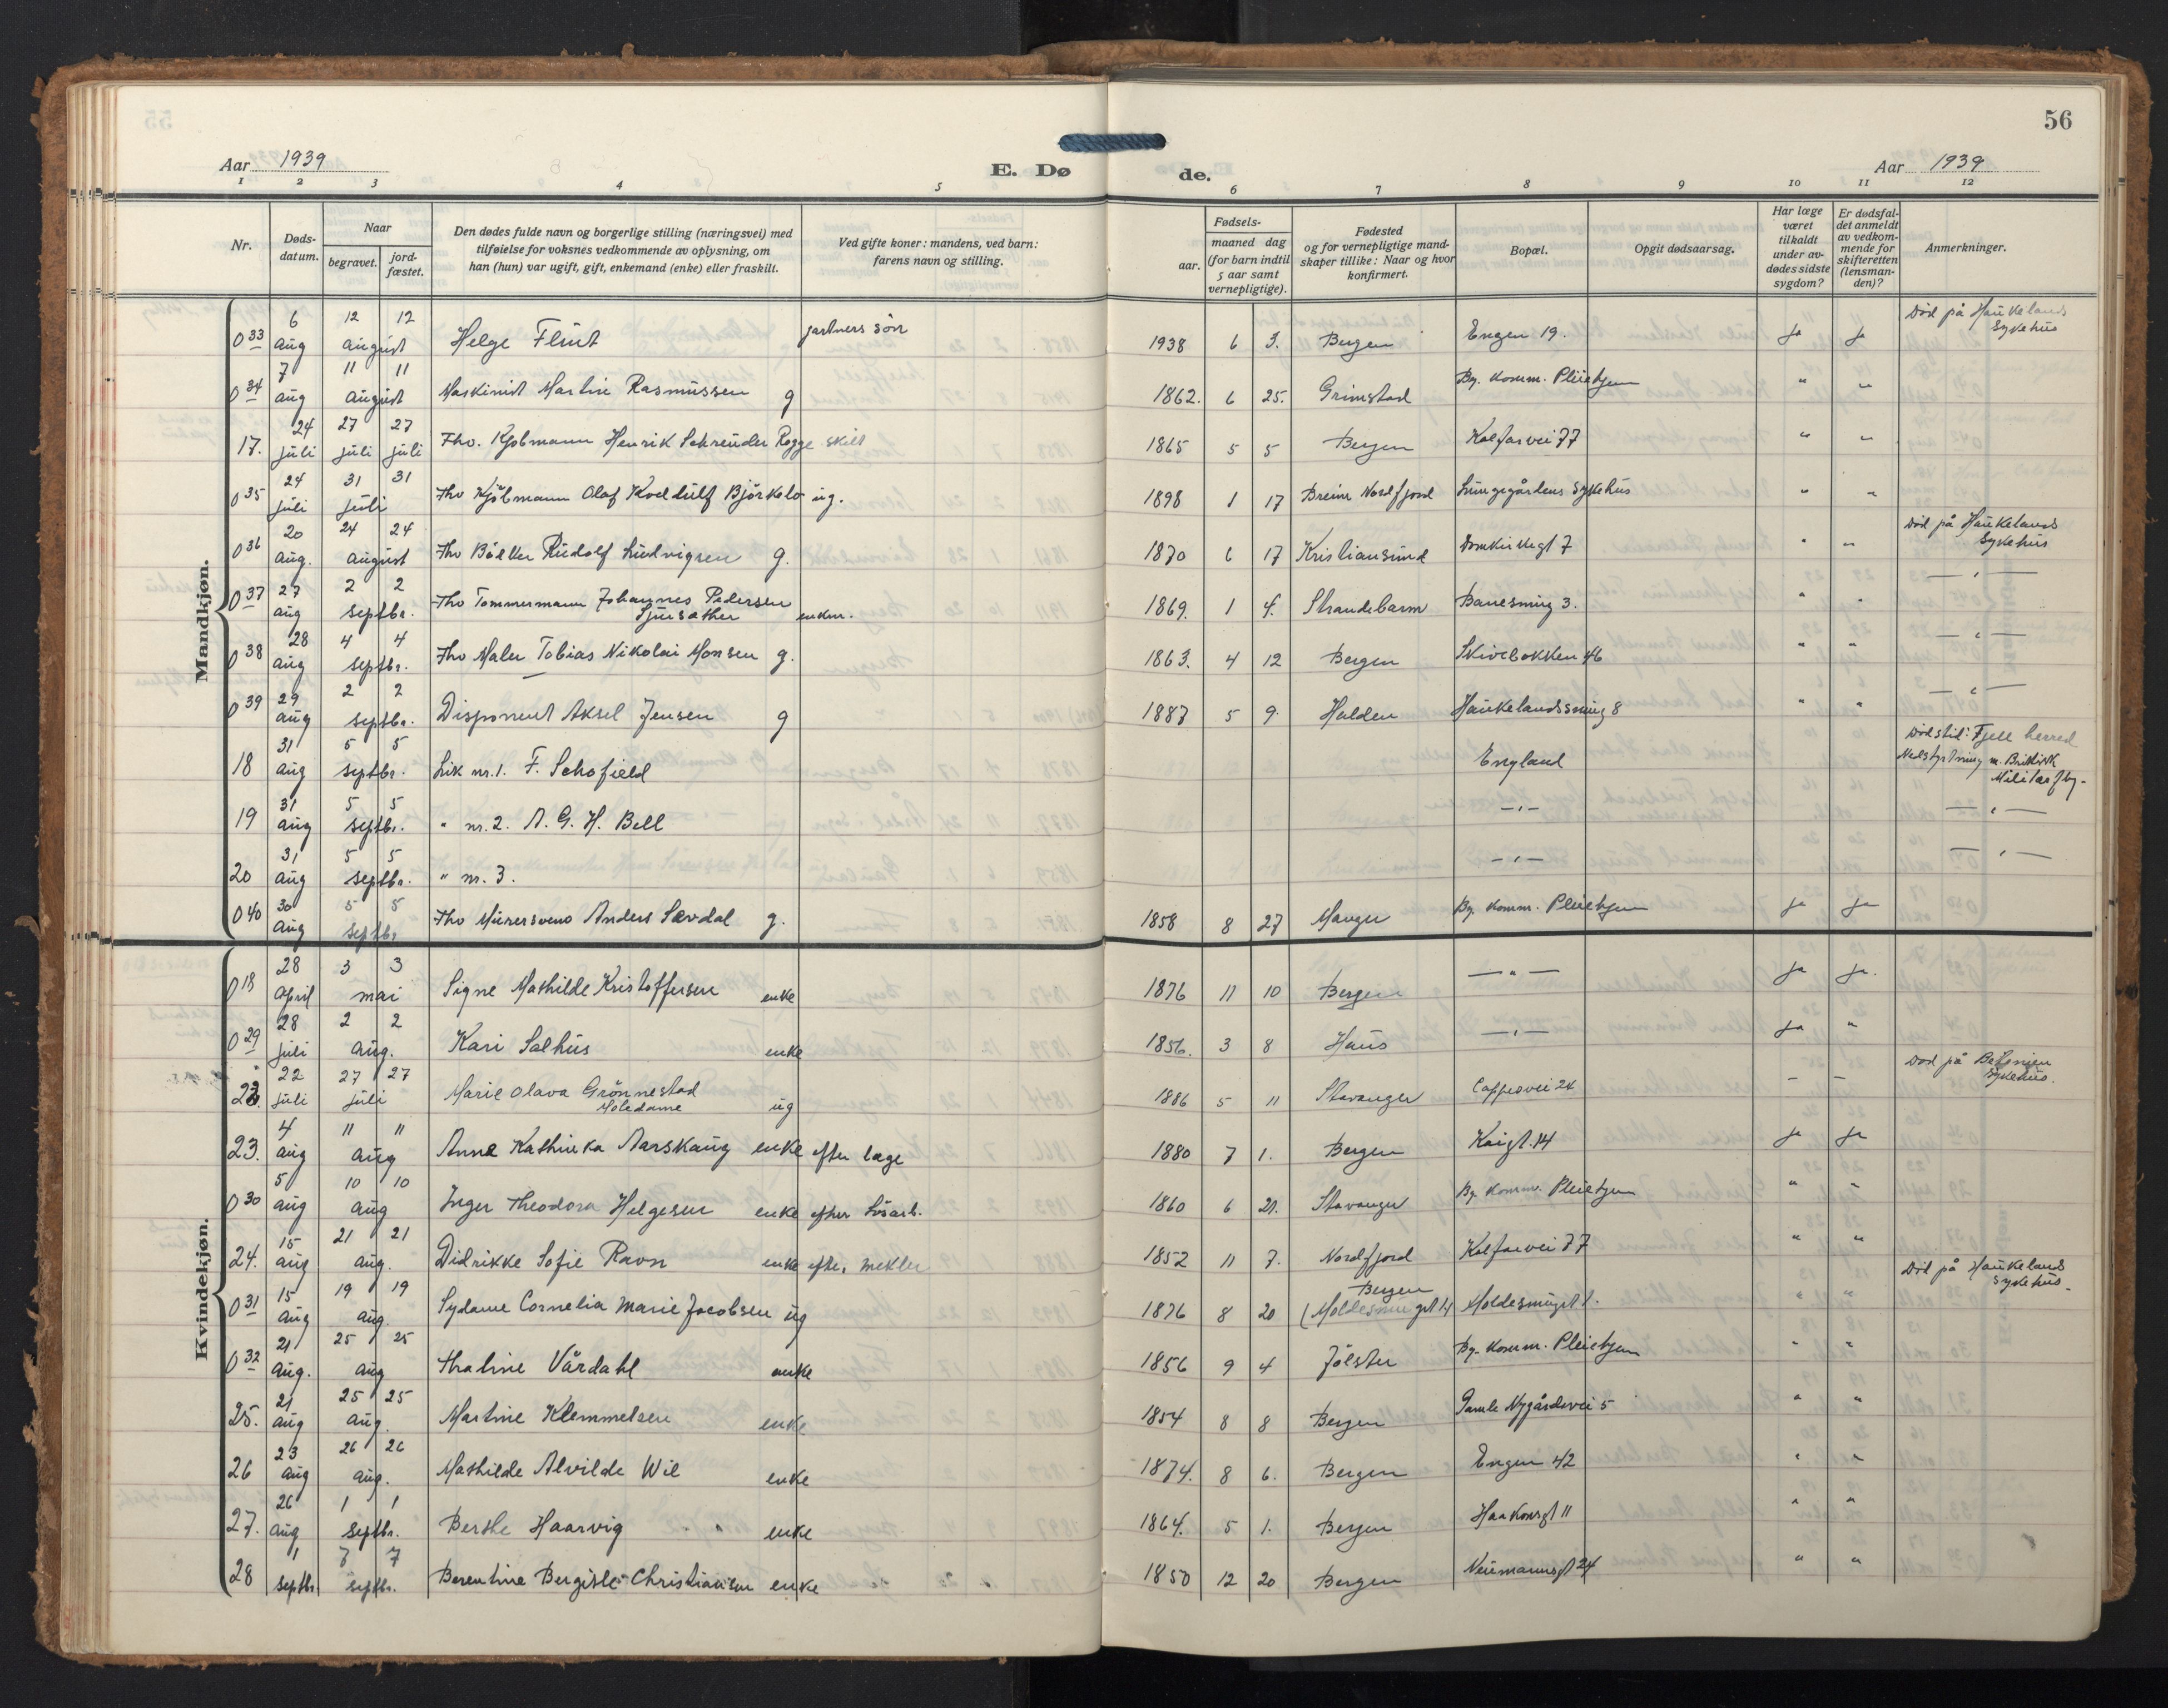 56
Aar 1939
E. Dø
de.
Aar 1939
1 2 3 4 5 6 7 8 9 10 11 12
Nr.
Døds-
datum.
Naar
begravet.
jord-
fæstet.
Den dødes fulde navn og borgerlige stilling (næringsvei) med
tilføielse for voksnes vedkommende av oplysning, om
han (hun) var ugift, gift, enkemand (enke) eller fraskilt.
Ved gifte koner: mandens, ved barn:
farens navn og stilling.
Fødsels-
aar.
maaned dag
(for barn indtil
5 aar samt
vernepligtige).
Fødested
og for vernepligtige mand-
skaper tillike: Naar og hvor
konfirmert.
Bopæl.
Opgit dødsaarsag.
Har læge
været
tilkaldt
under av-
dødes sidste
sygdom?
Er dødsfal-
det anmeldt
av vedkom-
mende for
skifteretten
(lensman-
den)?
Anmerkninger.
Mandkjøn.
033 6 aug 12 12 august Helge Flint gartners sön 1938 6 3. Bergen Engen 19. Ja Ja Död på Haukelands Sykehus
034 7 aug 11 11 august Maskinist Martin Rasmussen g 1862. 6 25. Grimstad By. komm. Pleiehjem " "
17. 24 juli 27 27 juli juli Fhv. Kjøbmann Henrik Schreuder Rogge skilt 1865 5 5 Bergen Kalfarvei 77 " "
035 24 juli 31 31 juli Fhv Kjöbmann Olaf Kveldulf Björkelo ug. 1898 1 17 Breim Nordfjord Lungegårdens Sykehus " "
036 20 aug. 24 24 august Fhv Bökker Rudolf Ludvigsen g. 1870 6 17 Kristiansund Domkirkegt 7 " " Död på Haukelands Sykehus
037 27 aug 2 2 septbr. Fhv Tømmermann Johannes Pedersen Sjursæther enkm. 1869. 1 4. Strandebarm Banesmug 3. " " — " —
038 28 aug 4 4 septbr. Fhv Maler Tobias Nikolai Monsen g. 1863. 4 12 Bergen Skivebakken 46 " " — " —
039 29 aug 2 2 septbr. Disponent Aksel Jensen g 1887 5 9. Halden Haukelandssmug 8 " " — " —
18 31 aug 5 5 septbr. Lik nr. 1. F. Schofield England Dödsted: Fjell herred Nedstyrtning m. Britisk Militærfly.
19 31 aug 5 5 septbr. " nr. 2. A. G. H. Bell — " — — " —
20 31 aug 5 5 septbr. " nr. 3. — " — — " —
040 30 aug 5 5 septbr Fhv Murersvend Anders Sævdal g. 1858 8 27 Manger By. komm. Pleiehjem Ja Ja
Kvindekjøn.
018 28 april 3 3 mai Signe Mathilde Kristoffersen enke 1876 11 10 Bergen — " — Ja Ja.
029 28 juli 2 2 aug. Kari Salhus enke 1856. 3 8 Haus — " — Ja "
22. 22 juli 27 27 juli Marie Olava Grönnestad Motedame ug 1886 5 11 Stavanger Cappesvei 24 – – Död på Betanien Sykehus.
23. 4 aug 11 11 aug Anna Kathinka Aarskaug enke efter læge 1880 7 1. Bergen Kaigt. 14 Ja Ja
030 5 aug 10 10 aug Inger Theodora Helgesen enke efter Lösarb. 1860 6 21. Stavanger By. komm. Pleiehjem " "
24. 15 aug 21 21 aug. Didrikke Sofie Ravn enke efter mekler 1852 11 7. Nordfjord Kalfarvei 77 " "
031 15 aug 19 19 aug. Sydame Cornelia Marie Jacobsen ug 1876 8 20 Bergen Moldesmuget 1. " " Död på Haukelands Sykehus.
032 21 aug. 25 25 aug Thaline Vårdahl enke 1856 9 4 Jölster By. komm. Pleiehjem " "
25. 21 aug 25 25 aug. Martine Klemmetsen enke 1854 8 8 Bergen Gamle Nygårdsvei 5 " "
26 23 aug 26 26 aug. Mathilde Alvilde Wil enke 1874. 8 6. Bergen Engen 42 " "
27. 26 aug 1 1 septbr. Berthe Haarvig enke 1864. 5 1. Bergen Haakonsgt 11 " "
28 1 septbr. 7 7 septbr. Berentine Bergiste Christiansen enke 1850 12 20 Bergen Neumannsgt 24 " "